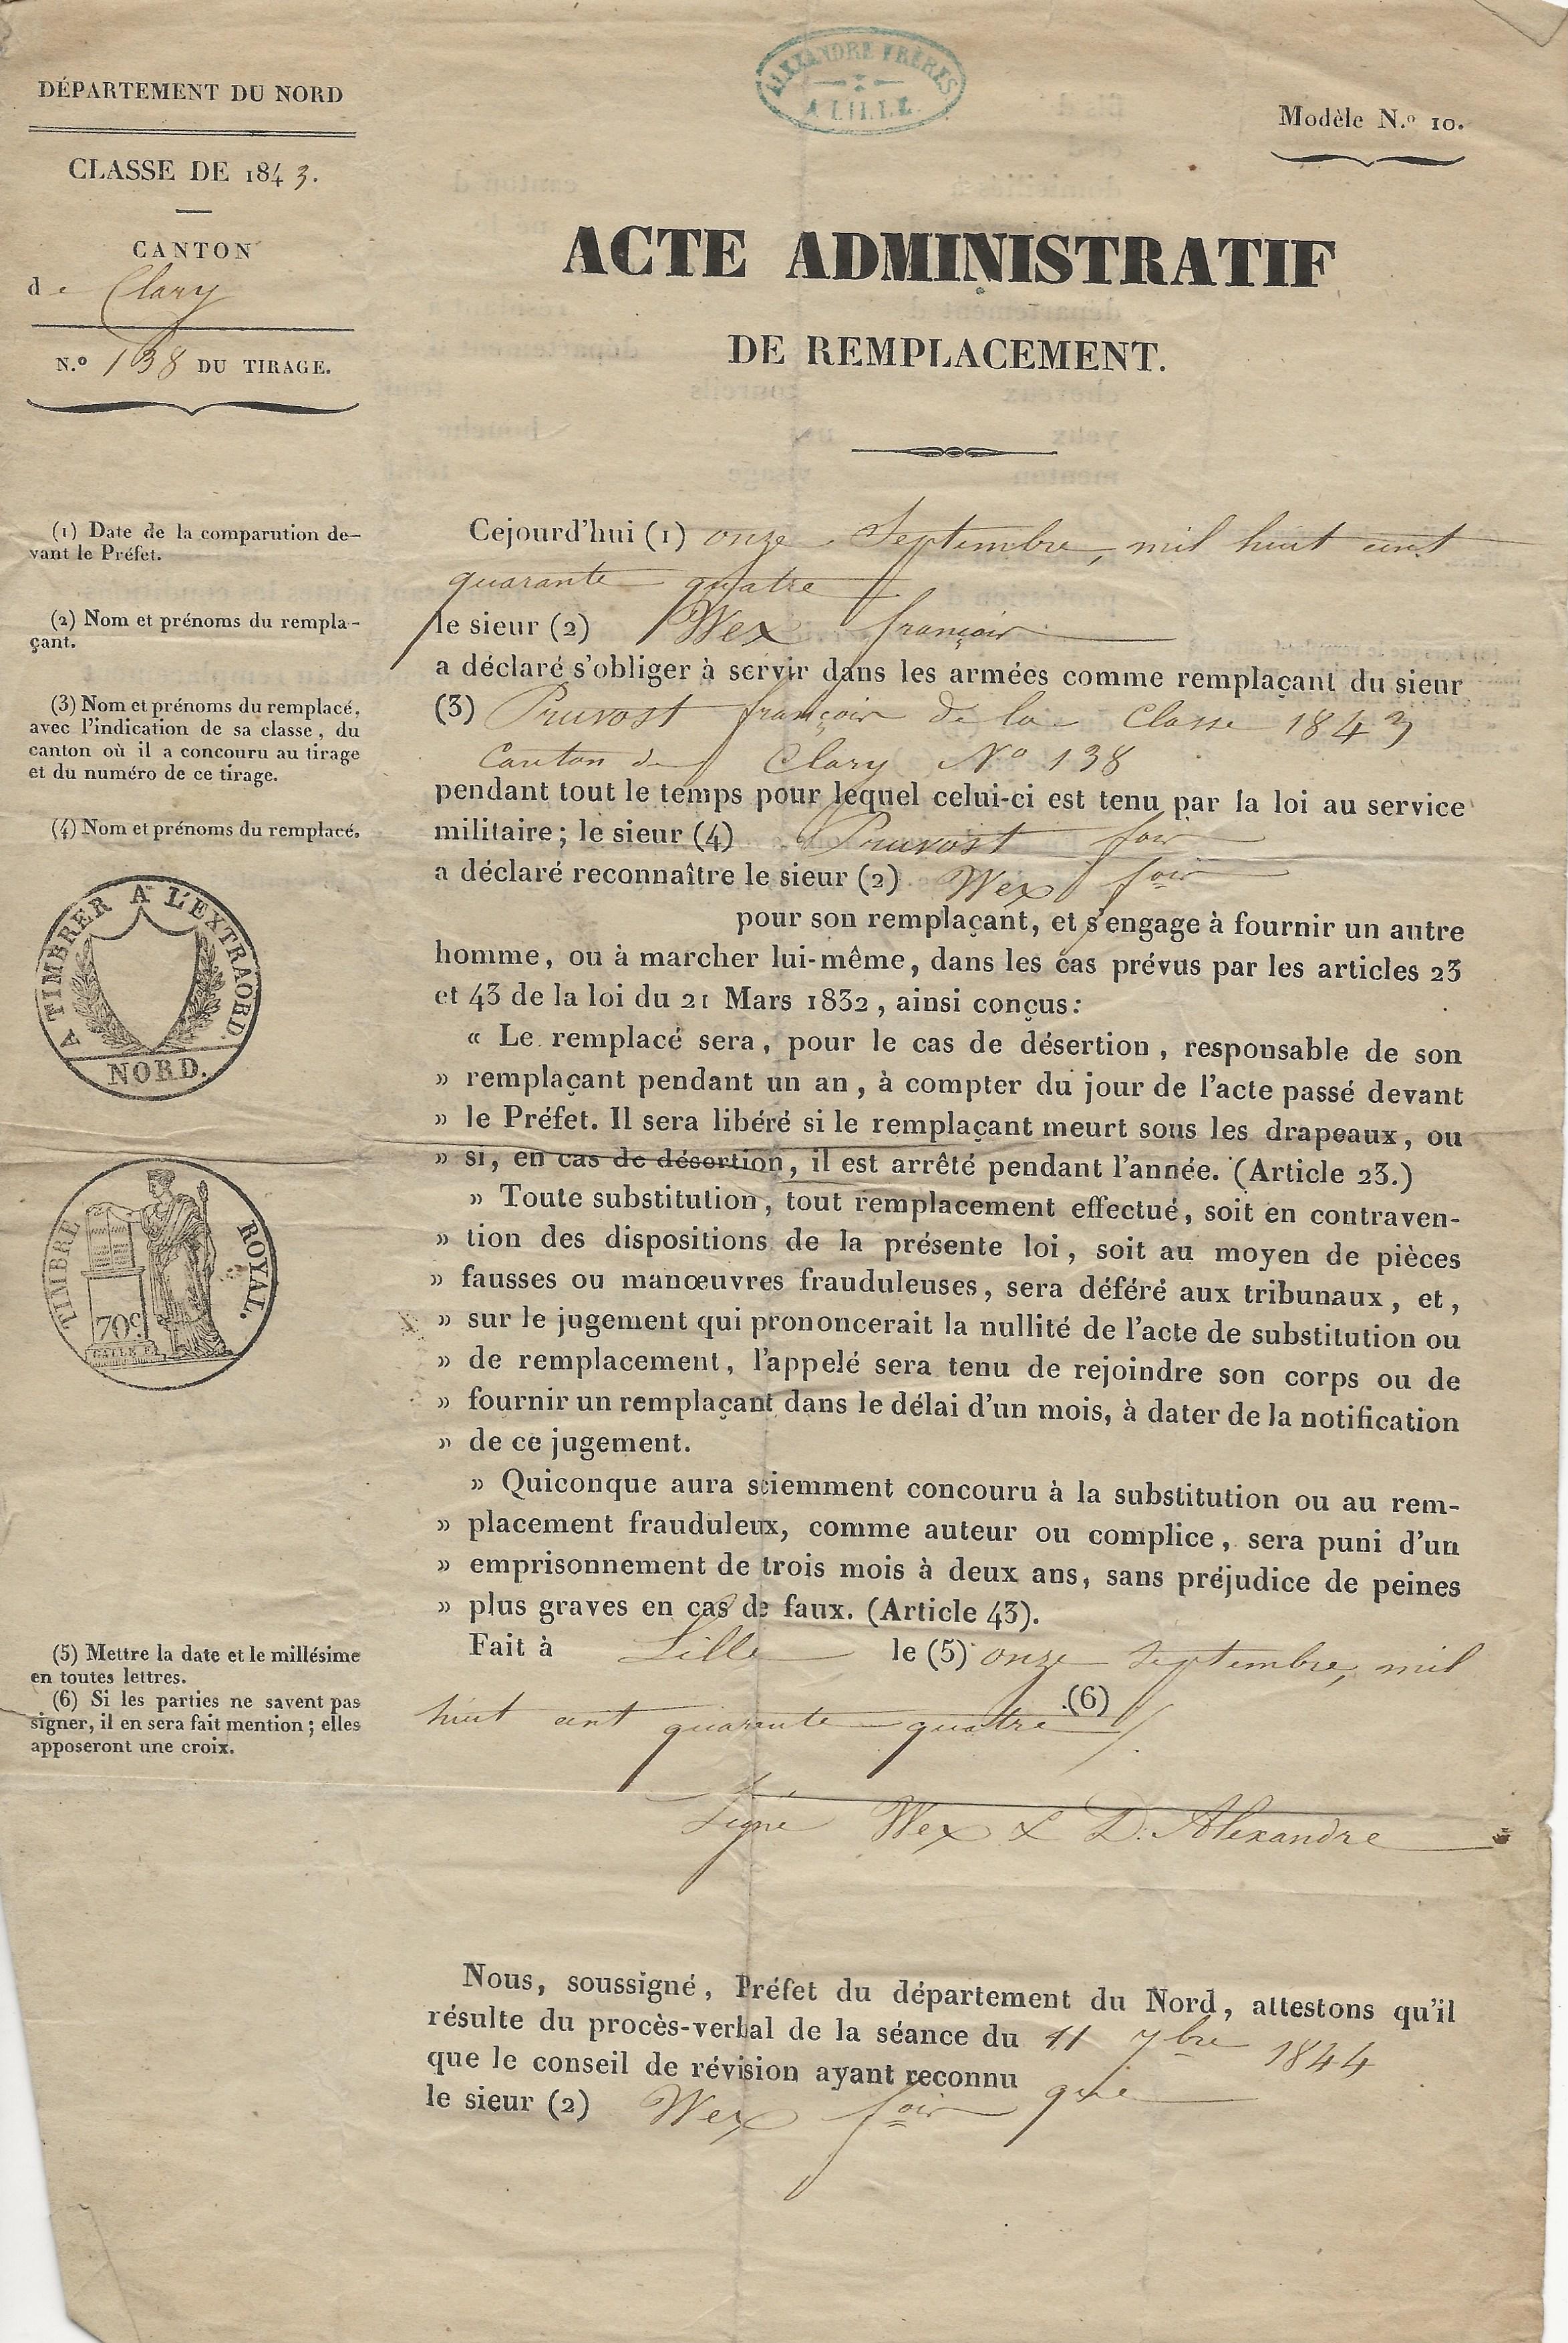 ALEXANDRE FRÈRES
A LILLE
DÉPARTEMENT DU NORD
CLASSE DE 1843.
CANTON
de Clary
N.º 138 DU TIRAGE.
Modèle N.º 10.
ACTE ADMINISTRATIF
DE REMPLACEMENT.
(1) Date de la comparution de-
vant le Préfet.
(2) Nom et prénoms du rempla-
çant.
(3) Nom et prénoms du remplacé,
avec l'indication de sa classe, du
canton où il a concouru au tirage
et du numéro de ce tirage.
(4) Nom et prénoms du remplacé.
A TIMBRER A L'EXTRAORD.
NORD.
TIMBRE ROYAL.
70c
Cejourd'hui (1) onze Septembre, mil huit cent
quarante quatre
le sieur (2) Wex françois
a déclaré s'obliger à servir dans les armées comme remplaçant du sieur
(3) Pruvost françois de la Classe 1843
Canton de Clary Nº 138
pendant tout le temps pour lequel celui-ci est tenu par la loi au service
militaire; le sieur (4) Pruvost fois
a déclaré reconnaître le sieur (2) Wex fois
pour son remplaçant, et s'engage à fournir un autre
homme, ou à marcher lui-même, dans les cas prévus par les articles 23
et 43 de la loi du 21 Mars 1832, ainsi conçus:
« Le remplacé sera, pour le cas de désertion, responsable de son
» remplaçant pendant un an, à compter du jour de l'acte passé devant
» le Préfet. Il sera libéré si le remplaçant meurt sous les drapeaux, ou
» si, en cas de désertion, il est arrêté pendant l'année. (Article 23.)
» Toute substitution, tout remplacement effectué, soit en contraven-
» tion des dispositions de la présente loi, soit au moyen de pièces
» fausses ou manœuvres frauduleuses, sera déféré aux tribunaux, et,
» sur le jugement qui prononcerait la nullité de l'acte de substitution ou
» de remplacement, l'appelé sera tenu de rejoindre son corps ou de
» fournir un remplaçant dans le délai d'un mois, à dater de la notification
» de ce jugement.
» Quiconque aura sciemment concouru à la substitution ou au rem-
» placement frauduleux, comme auteur ou complice, sera puni d'un
» emprisonnement de trois mois à deux ans, sans préjudice de peines
» plus graves en cas de faux. (Article 43).
(5) Mettre la date et le millésime
en toutes lettres.
(6) Si les parties ne savent pas
signer, il en sera fait mention; elles
apposeront une croix.
Fait à Lille le (5) onze septembre, mil
huit cent quarante quatre (6)
Signé Wex & D. Alexandre
Nous, soussigné, Préfet du département du Nord, attestons qu'il
résulte du procès-verbal de la séance du 11 7bre 1844
que le conseil de révision ayant reconnu que
le sieur (2) Wex fois